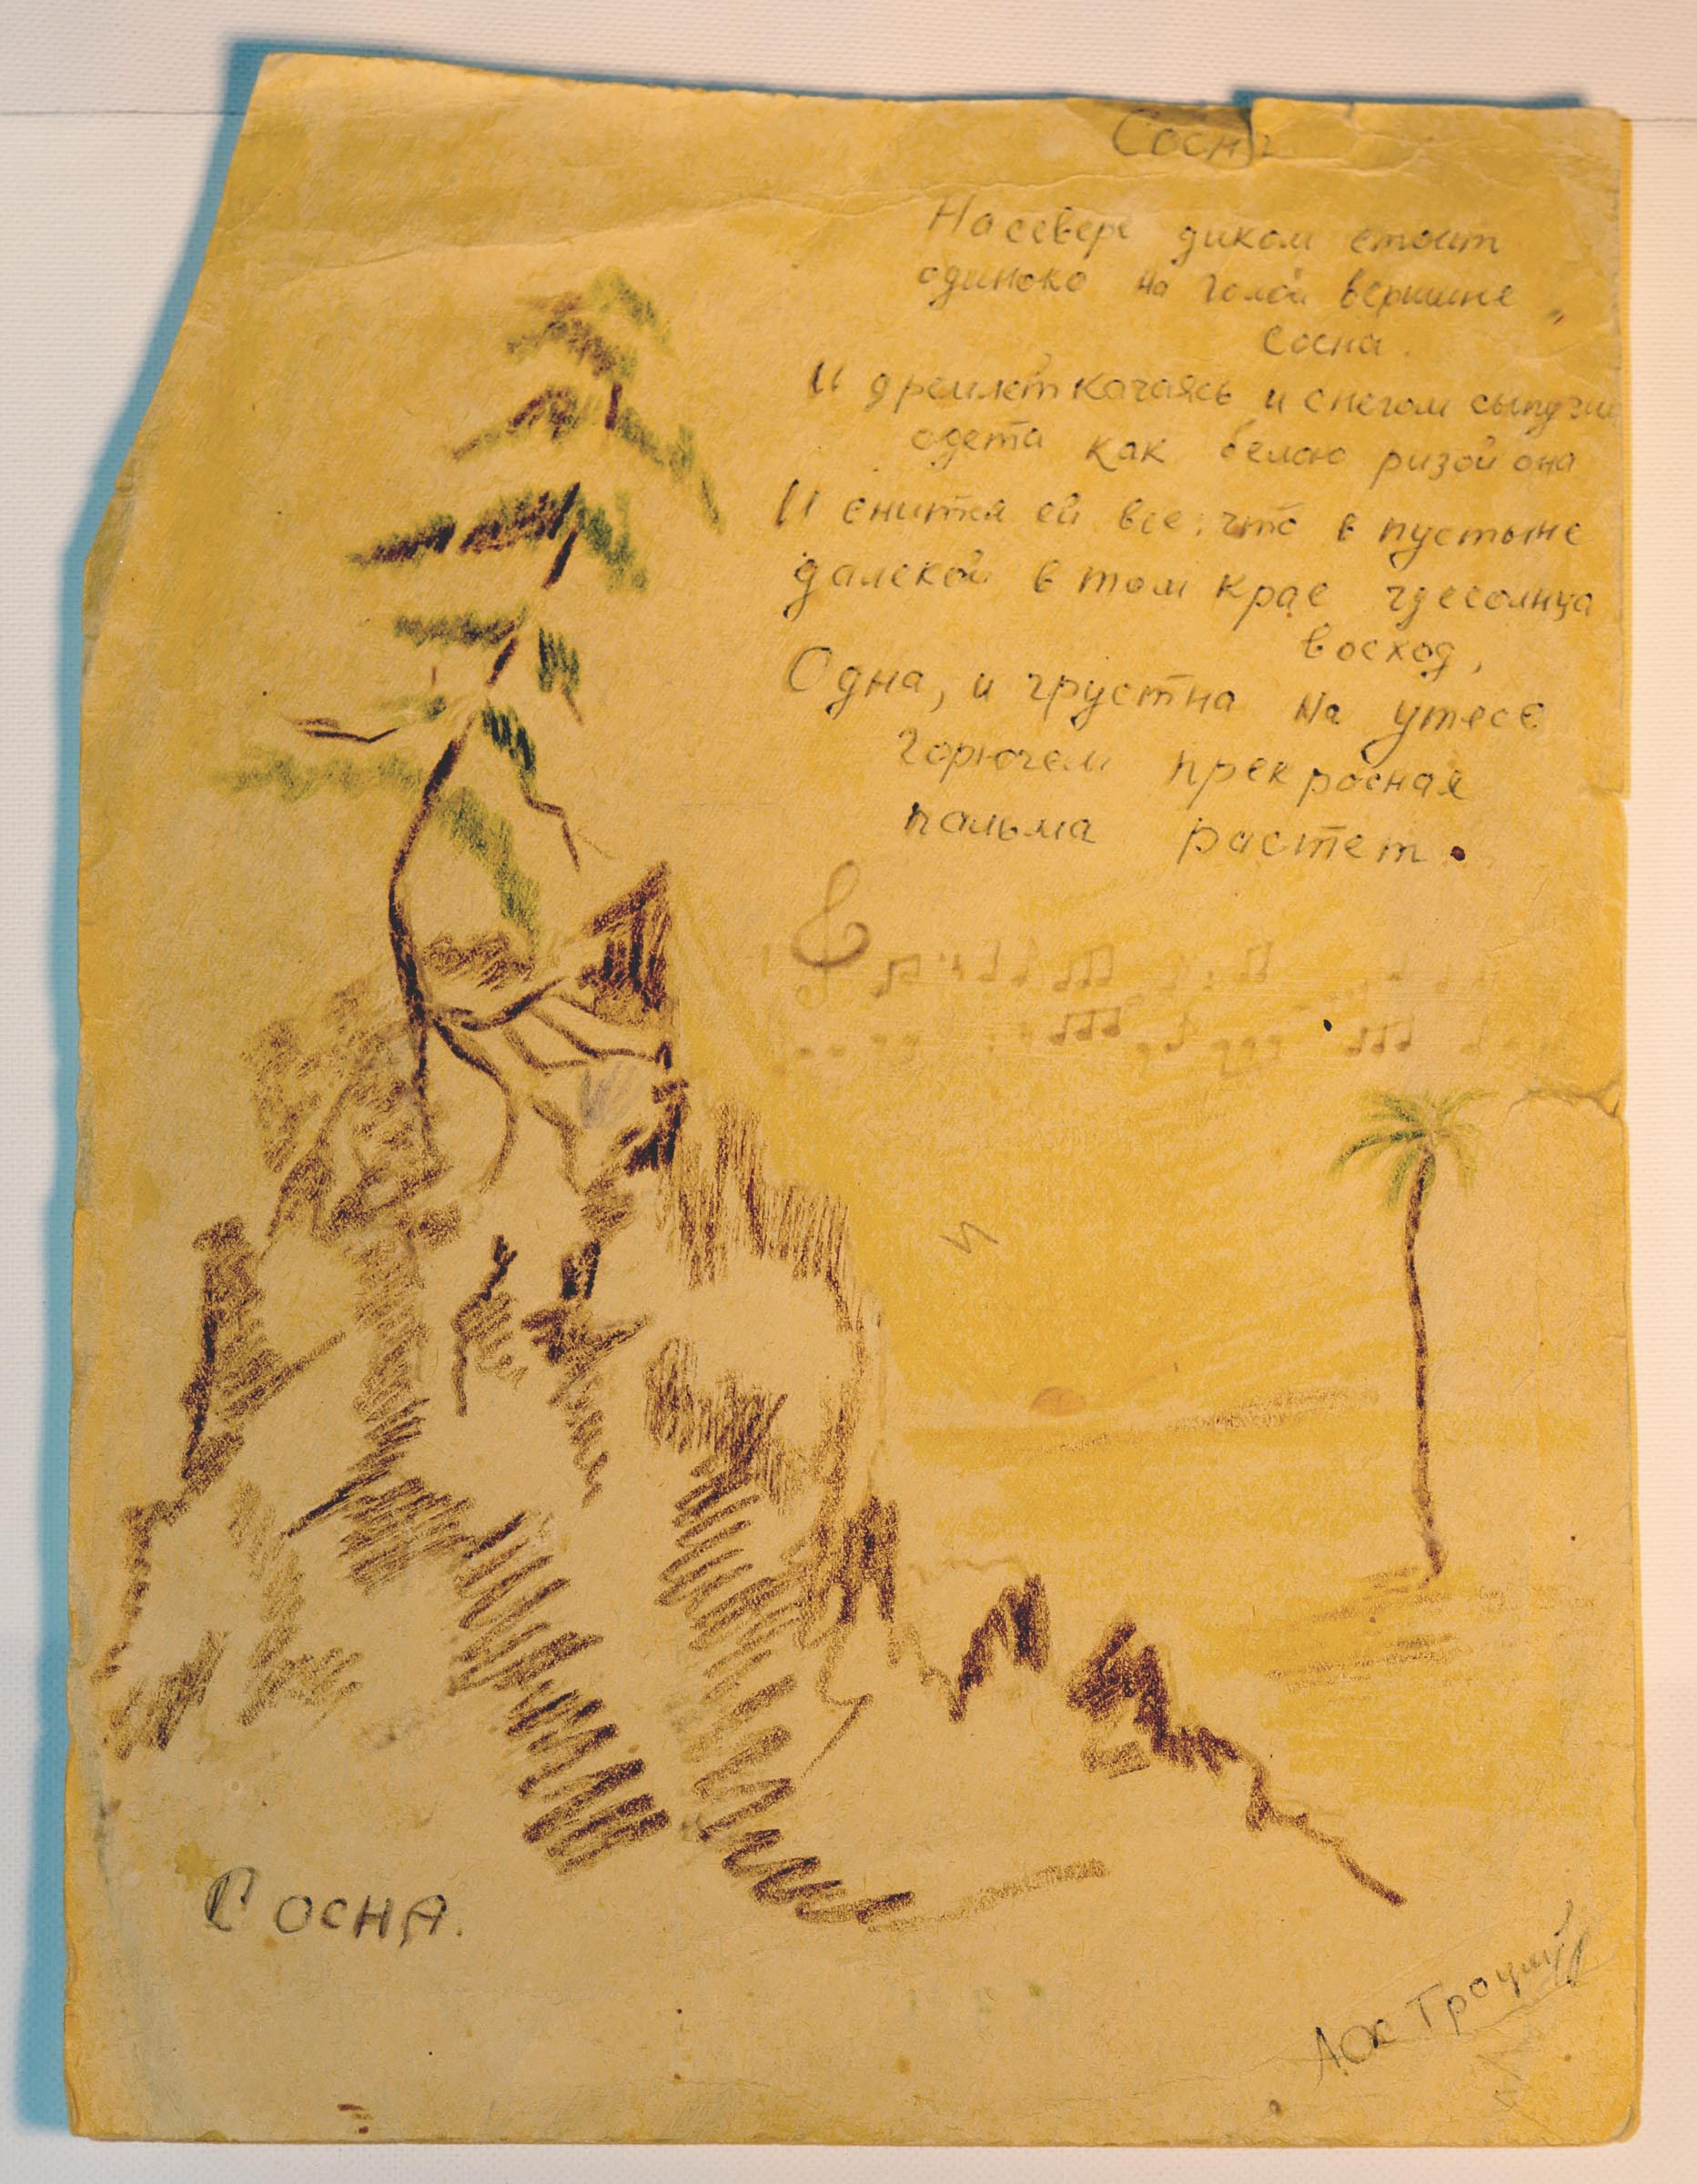 Сосна
На севере диком стоит
одиноко на голой вершине
Сосна.
И дремлет качаясь и снегом сыпучим
одета как белою ризой она
И снится ей все, что в пустыне
далекой в том крае где солнца
восход,
Одна, и грустна на утесе
Горючем прекрасная
пальма растет.
Сосна.
Троцкий